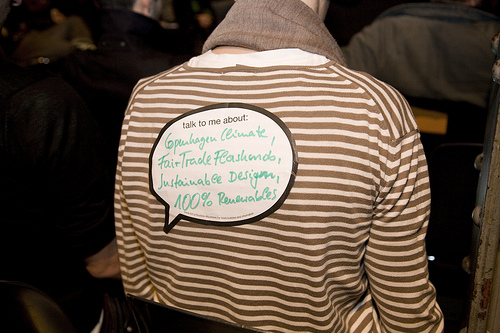 talk to me about:
Copenhagen Climate,
FairTrade Flashmobs,
Sustainable Design,
100% Renewables